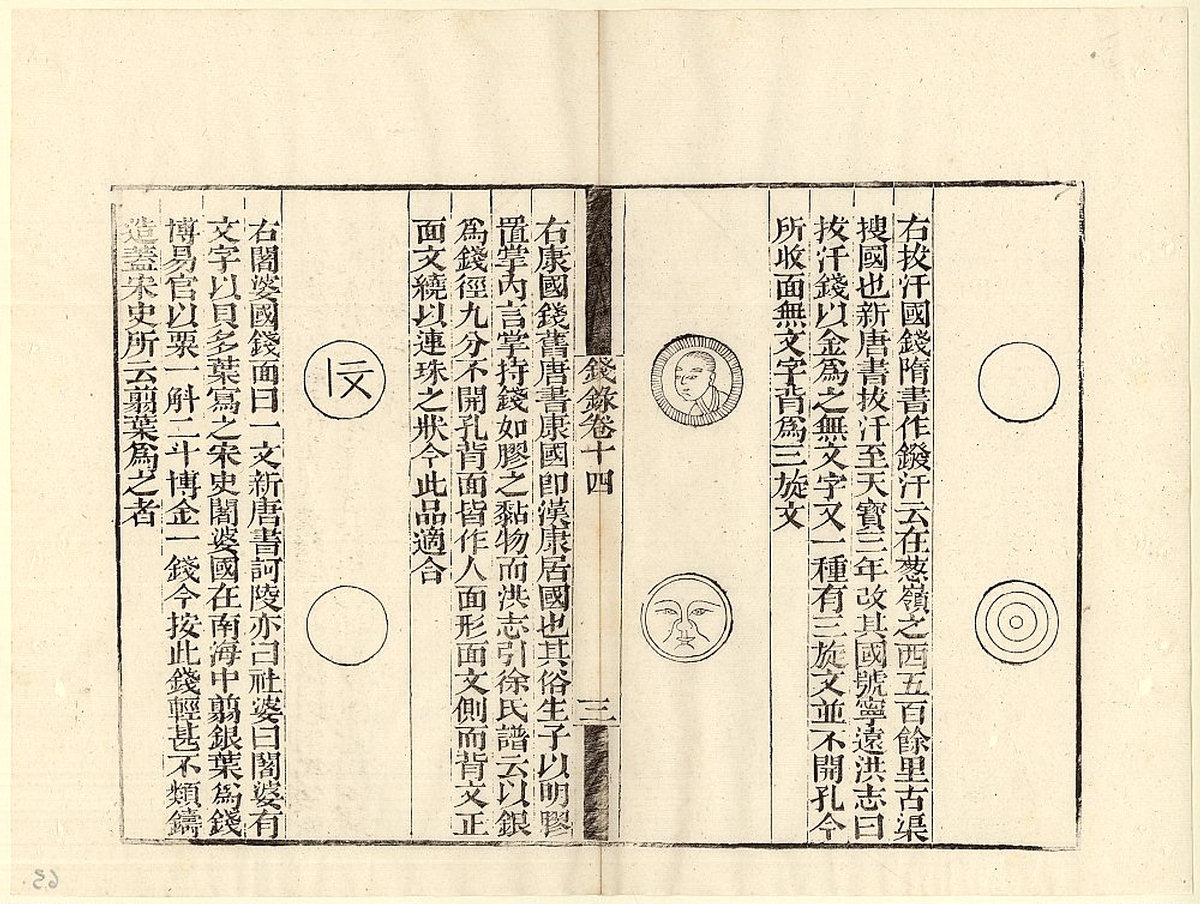 右拔汗國錢隋書作鏺汗云在葱嶺之西五百餘里古渠
搜國也新唐書拔汗至天寶三年改其國號寧遠洪志曰
拔汗錢以金爲之無文字又一種有三旋文並不開孔今
所收面無文字背爲三旋文
錢錄卷十四
三
右康國錢舊唐書康國卽漢康居國也其俗生子以明膠
置掌內言掌持錢如膠之黏物而洪志引徐氏譜云以銀
爲錢徑九分不開孔背面皆作人面形面文側而背文正
面文繞以連珠之狀今此品適合
右闍婆國錢面曰一文新唐書訶陵亦曰社婆曰闍婆有
文字以貝多葉寫之宋史闍婆國在南海中翦銀葉爲錢
博易官以粟一斛二斗博金一錢今按此錢輕甚不類鑄
造蓋宋史所云翦葉爲之者
63